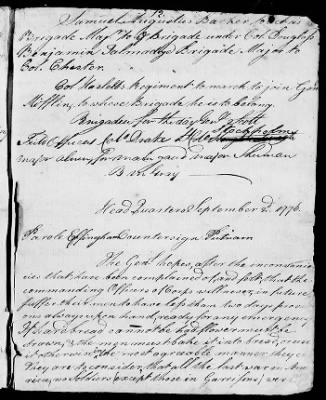 Samuel Augustus Barker to act as
Brigade Majr to Brigade under Col. Douglass
Benjamin Talmadge Brigade Major to
Col. Chester.
Col Hasletts Regiment to march to join Genl
Mifflin, to whose Brigade he is to belong.
Brigadier for the day Genl Scott
Field Officers Col. Drake Lt Col Stockholm
Major for main guard Major Sherman
B. M. Fry
Head Quarters September 2d 1776.
Parole Effingham Countersign Putnam
The Genl hopes, after the inconvenien
cies that have been complained of, and felt, that the
commanding Officers of Corps will never, in future
suffer their men to have less than two days provis
ons always upon hand, ready for any emergency
If hard bread cannot be had flour must be
drawn, & the men must bake it into bread, or use
it otherwise in the most agreeable manner they can
They are to consider, that all the last war in Ame
rica, no Soldiers (except those in Garrison) were